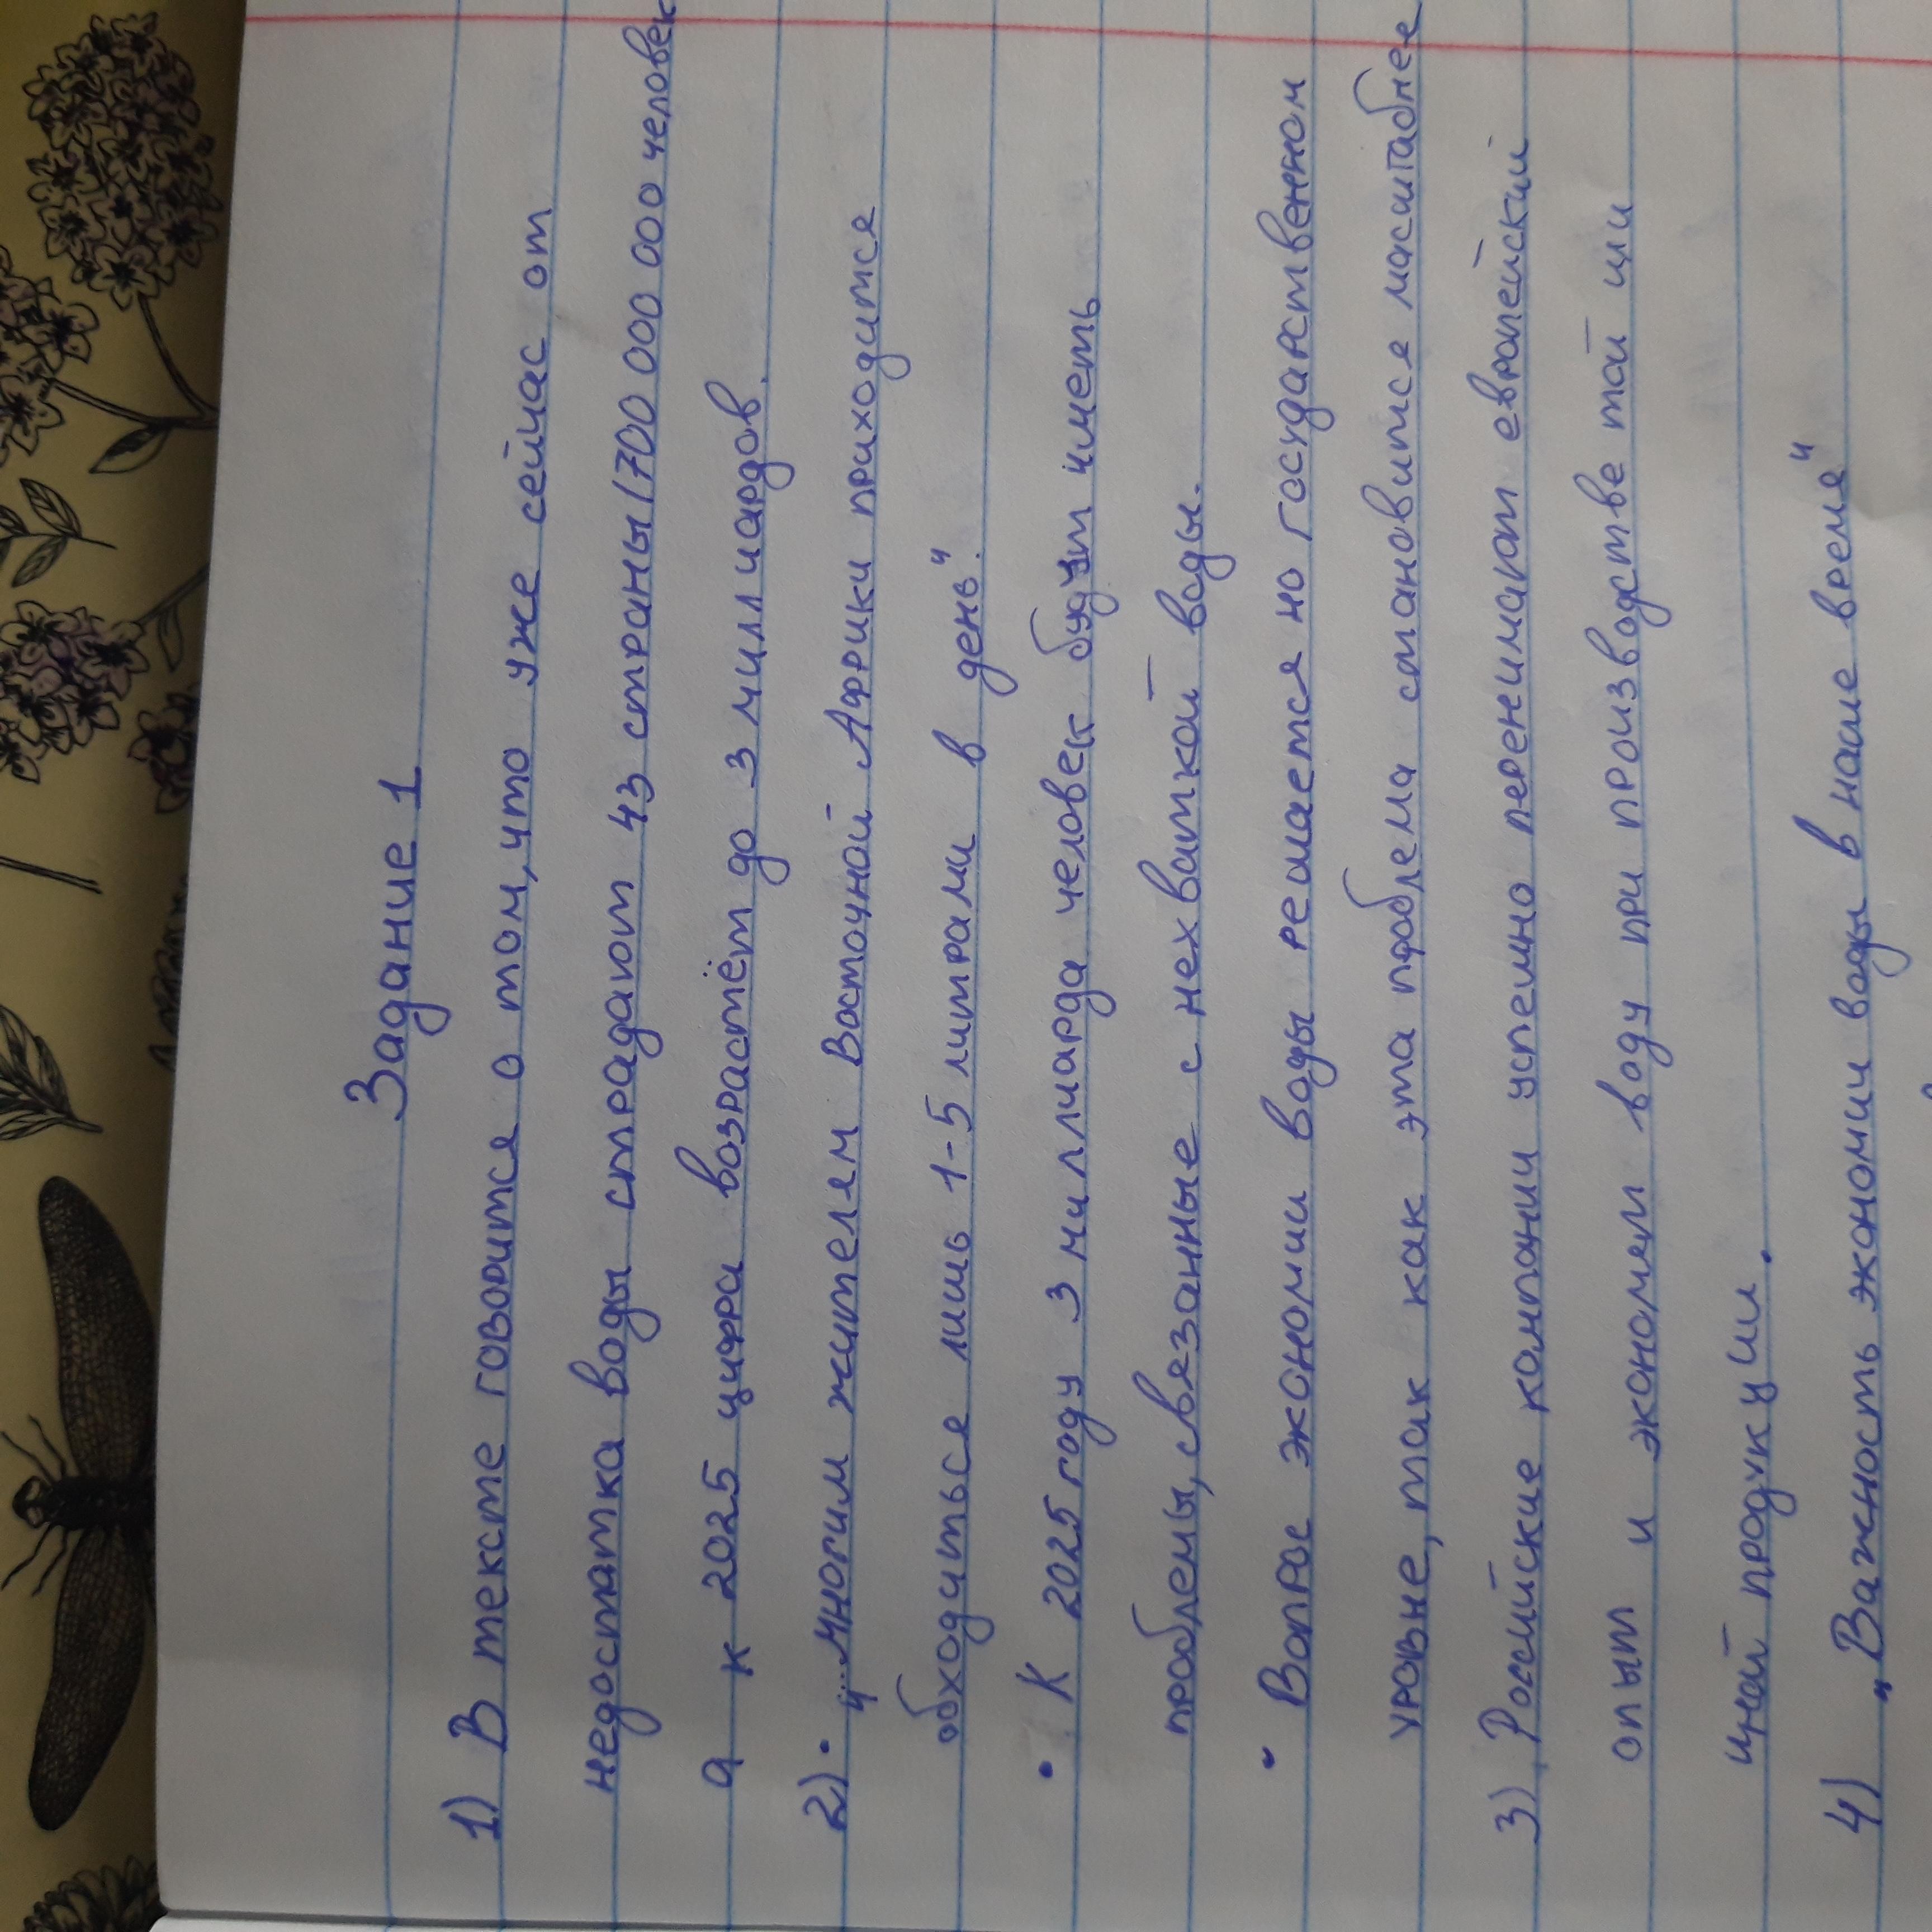 Задание 1
1) В тексте говорится о том, что уже сейчас от
недостатка воды страдают 43 страны (700 000 000 человек
а к 2025 цифра возрастёт до 3 миллиардов.
2) • "...Многим жителям Восточной Африки приходится
обходиться лишь 1-5 литрами в день".
• К 2025 году 3 миллиарда человек будут иметь
проблемы, связанные с нехваткой воды.
• Вопрос экономии воды решается на государственном
уровне, так как эта проблема становится масштабнее
3) Российские компании успешно перенимают европейский
опыт и экономят воду при производстве той или
иной продукции.
4) „Важность экономии воды в наше время"